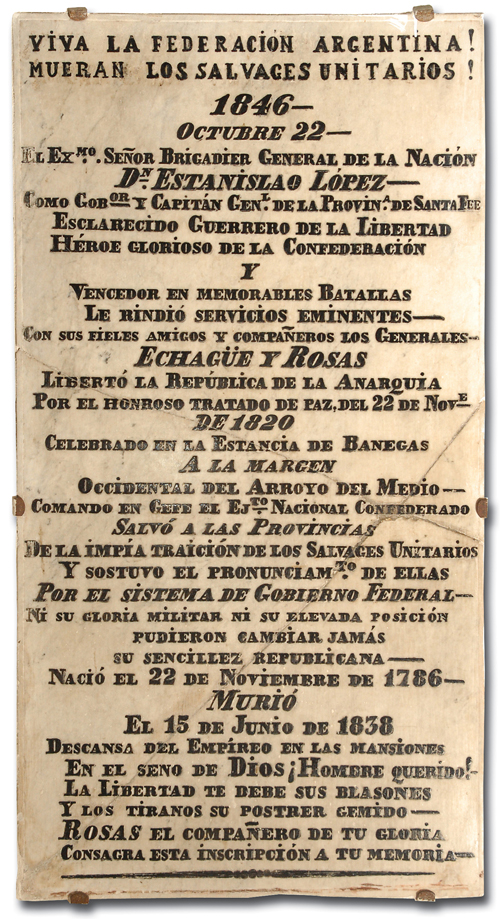 VIVA LA FEDERACIÓN ARGENTINA!
MUERAN LOS SALVAGES UNITARIOS!
1846—
OCTUBRE 22—
EL EXMO. SEÑOR BRIGADIER GENERAL DE LA NACIÓN
DN. ESTANISLAO LÓPEZ—
COMO GOBOR Y CAPITÁN GENL. DE LA PROVINA. DE SANTA FEE
ESCLARECIDO GUERRERO DE LA LIBERTAD
HÉROE GLORIOSO DE LA CONFEDERACIÓN
Y
VENCEDOR EN MEMORABLES BATALLAS
LE RINDIÓ SERVICIOS EMINENTES—
CON SUS FIELES AMIGOS Y COMPAÑEROS LOS GENERALES—
ECHAGÜE Y ROSAS
LIBERTÓ LA REPÚBLICA DE LA ANARQUIA
POR EL HONROSO TRATADO DE PAZ, DEL 22 DE NOVE
DE 1820
CELEBRADO EN LA ESTANCIA DE BANEGAS
A LA MARGEN
OCCIDENTAL DEL ARROYO DEL MEDIO—
COMANDO EN GEFE EL EJTO NACIONAL CONFEDERADO
SALVÓ A LAS PROVINCIAS
DE LA IMPÍA TRAICIÓN DE LOS SALVAGES UNITARIOS
Y SOSTUVO EL PRONUNCIAMTO. DE ELLAS
POR EL SISTEMA DE GOBIERNO FEDERAL—
NI SU GLORIA MILITAR NI SU ELEVADA POSICIÓN
PUDIERON CAMBIAR JAMÁS
SU SENCILLEZ REPUBLICANA—
NACIÓ EL 22 DE NOVIEMBRE DE 1786—
MURIÓ
EL 15 DE JUNIO DE 1838
DESCANSA DEL EMPÍREO EN LAS MANSIONES
EN EL SENO DE DIOS ¡HOMBRE QUERIDO!-
LA LIBERTAD TE DEBE SUS BLASONES
Y LOS TIRANOS SU POSTRER GEMIDO—
ROSAS EL COMPAÑERO DE TU GLORIA
CONSAGRA ESTA INSCRIPCIÓN A TU MEMORIA—